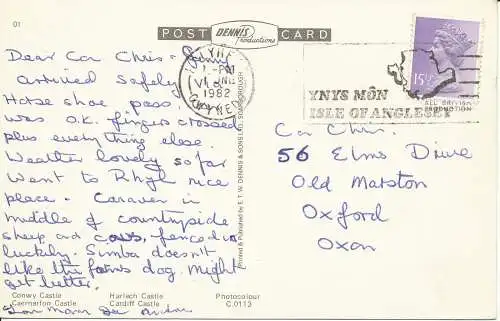 01
POST DENNIS Productions CARD
Dear Con Chris + Jenny
arrived safely
Horse shoe pass
was O.K. fingers crossed
plus everything else.
Weather lovely so far
Went to Rhyl nice
place - Caravan in
middle of countryside
sheep and cows, fenced in
luckily. Simba doesn't
like the farms dog. Might
get better.
Conwy Castle Harlech Castle Photocolour
Caernarfon Castle Cardiff Castle C.0113
Printed & Published by E. T. W. DENNIS & SONS LTD., SCARBOROUGH
1982
GWYNEDD
YNYS MÔN
ISLE OF ANGLESEY
15½
56 Elms Drive
Old Marston
Oxford
Oxon